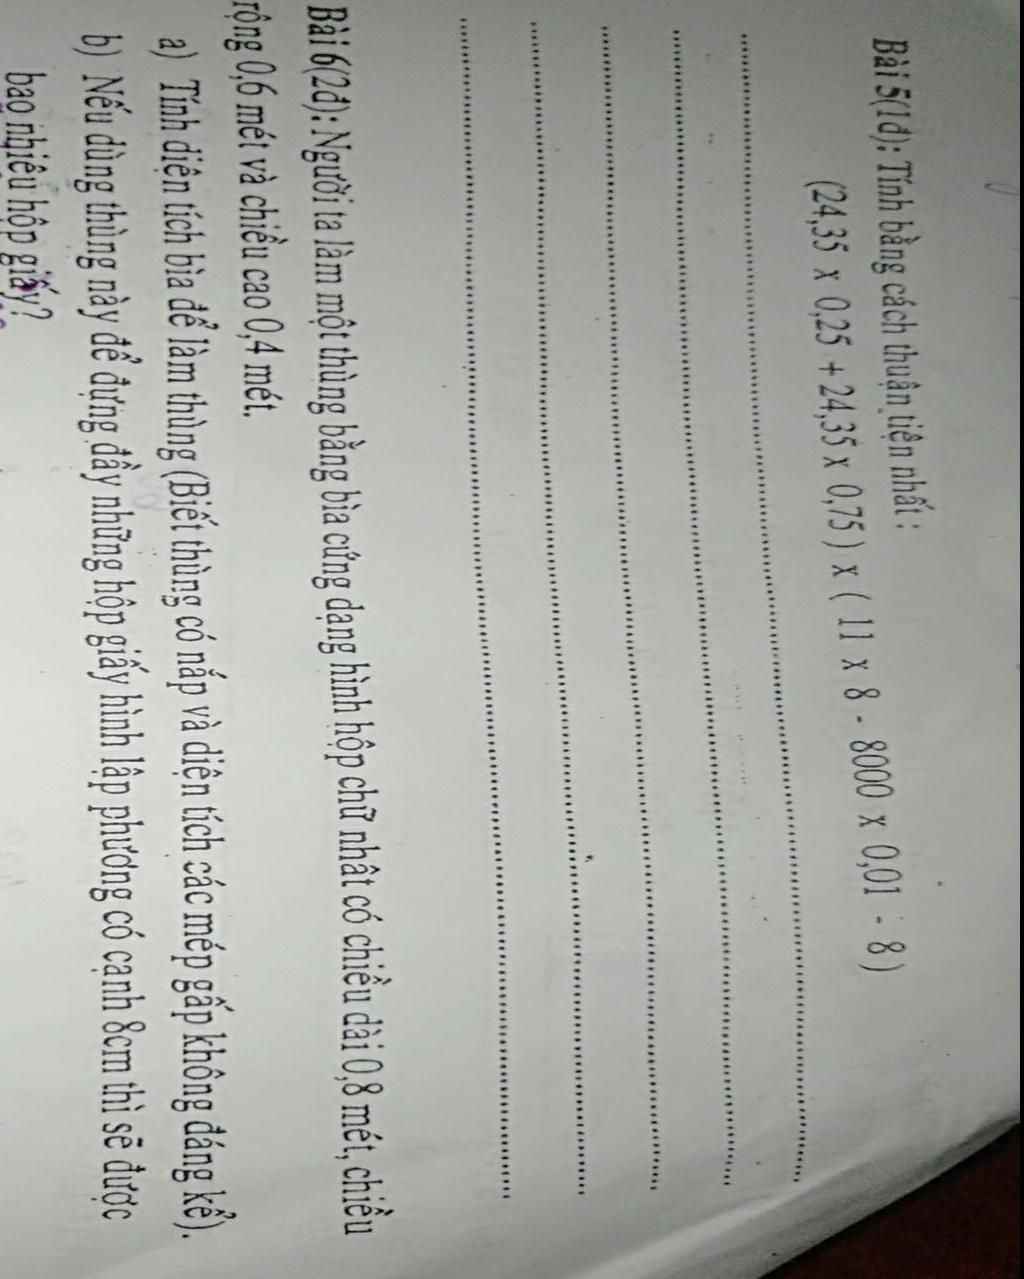 Bài 5(1đ): Tính bằng cách thuận tiện nhất :
(24,35 x 0,25 + 24,35 x 0,75 ) x ( 11 x 8 - 8000 x 0,01 - 8 )
Bài 6(2đ): Người ta làm một thùng bằng bìa cứng dạng hình hộp chữ nhât có chiều dài 0,8 mét, chiều
rộng 0,6 mét và chiều cao 0,4 mét.
a) Tính diện tích bìa để làm thùng (Biết thùng có nắp và diện tích các mép gấp không đáng kể).
b) Nếu dùng thùng này để đựng đầy những hộp giấy hình lập phương có cạnh 8cm thì sẽ được
bao nhiêu hộp giấy?